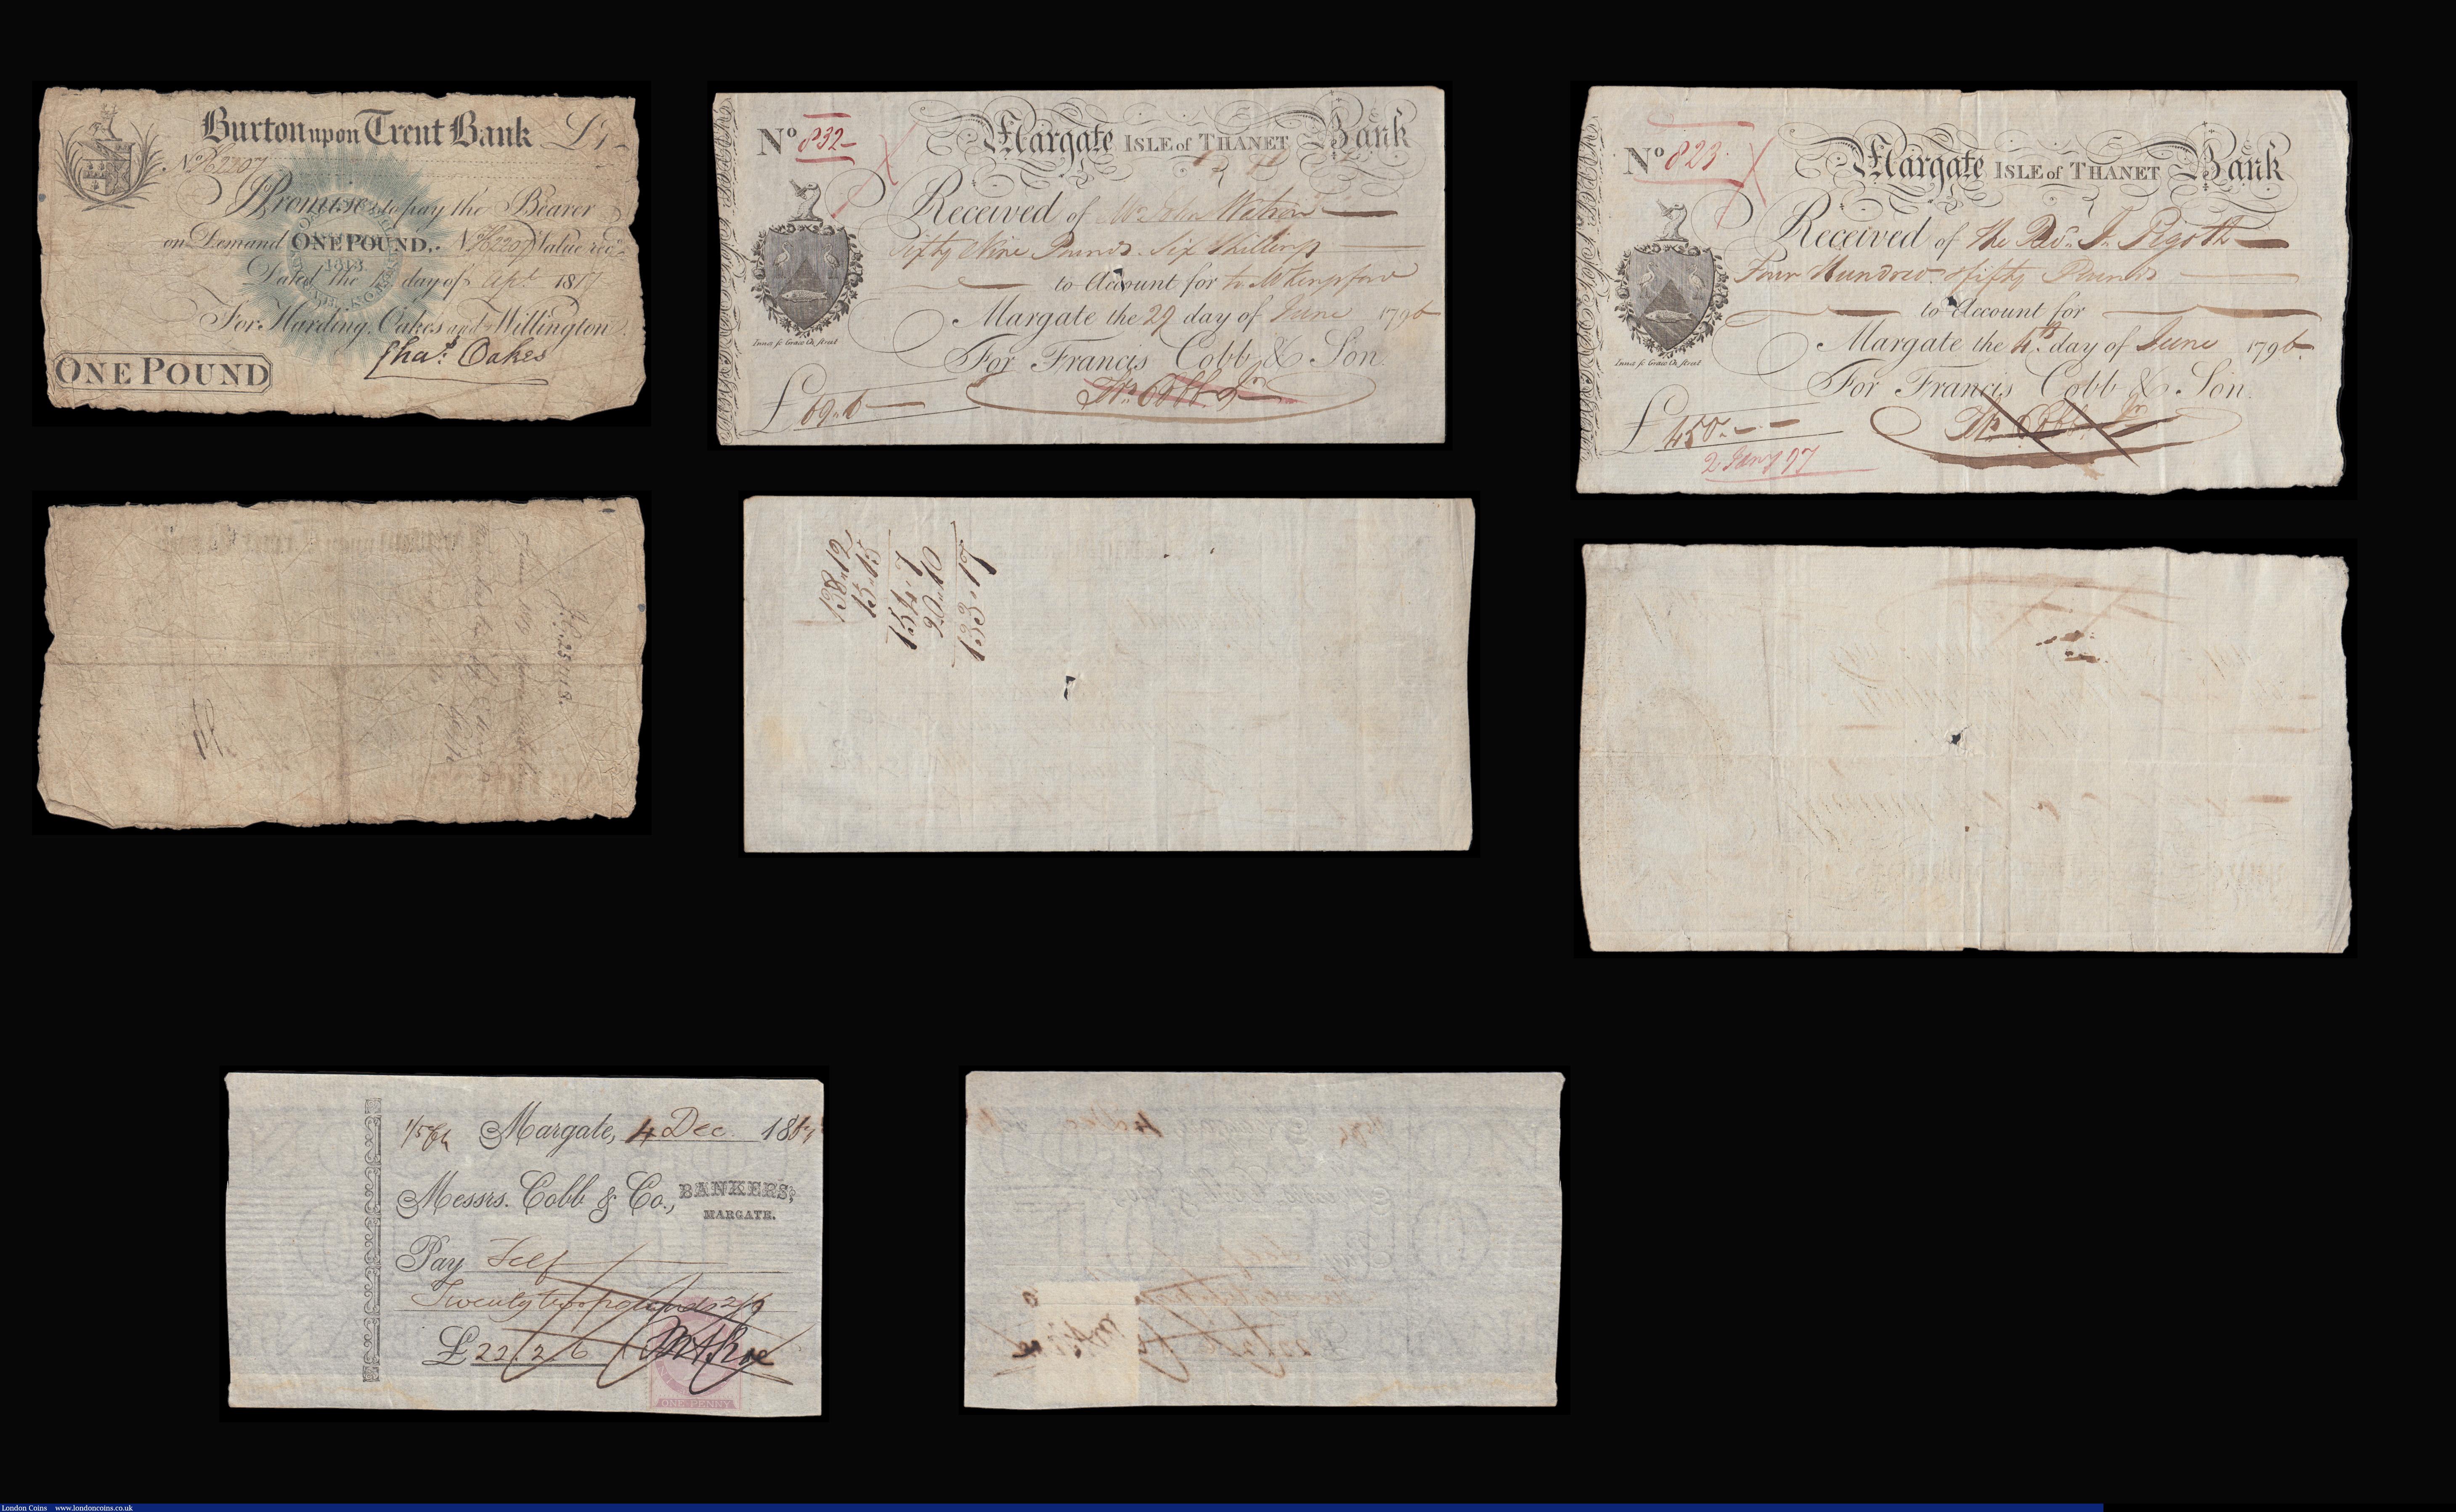 Burton upon Trent Bank £1-
No H2207
I Promise to pay the Bearer
on Demand ONE POUND,. No H2207 Value recd
Dated the day of Apl 1817
For Harding, Oakes and Willington.
Chas. Oakes
ONE POUND
No 832-
Margate ISLE of THANET Bank
Received of Mr John Watson
Fifty Nine Pounds Six Shillings
to Account for to
Margate the 29 day of June 1796
For Francis Cobb & Son.
Frs Cobb Jr
£ 69.6-
No 823.
Margate ISLE of THANET Bank
Received of the Revd. J. Pigott
Four Hundred & fifty Pounds
to Account for
Margate the 4th day of June 1796.
For Francis Cobb & Son.
Frs Cobb Jr
£ 450.--
2 Jany 97
138.12
15.15
154.7
20.10
133.17
Margate, 4 Dec. 18
Messrs. Cobb & Co., BANKERS,
MARGATE.
Pay Self
Twenty two pounds 2/6
£22/2/6
ONE PENNY
London Coins www.londoncoins.co.uk